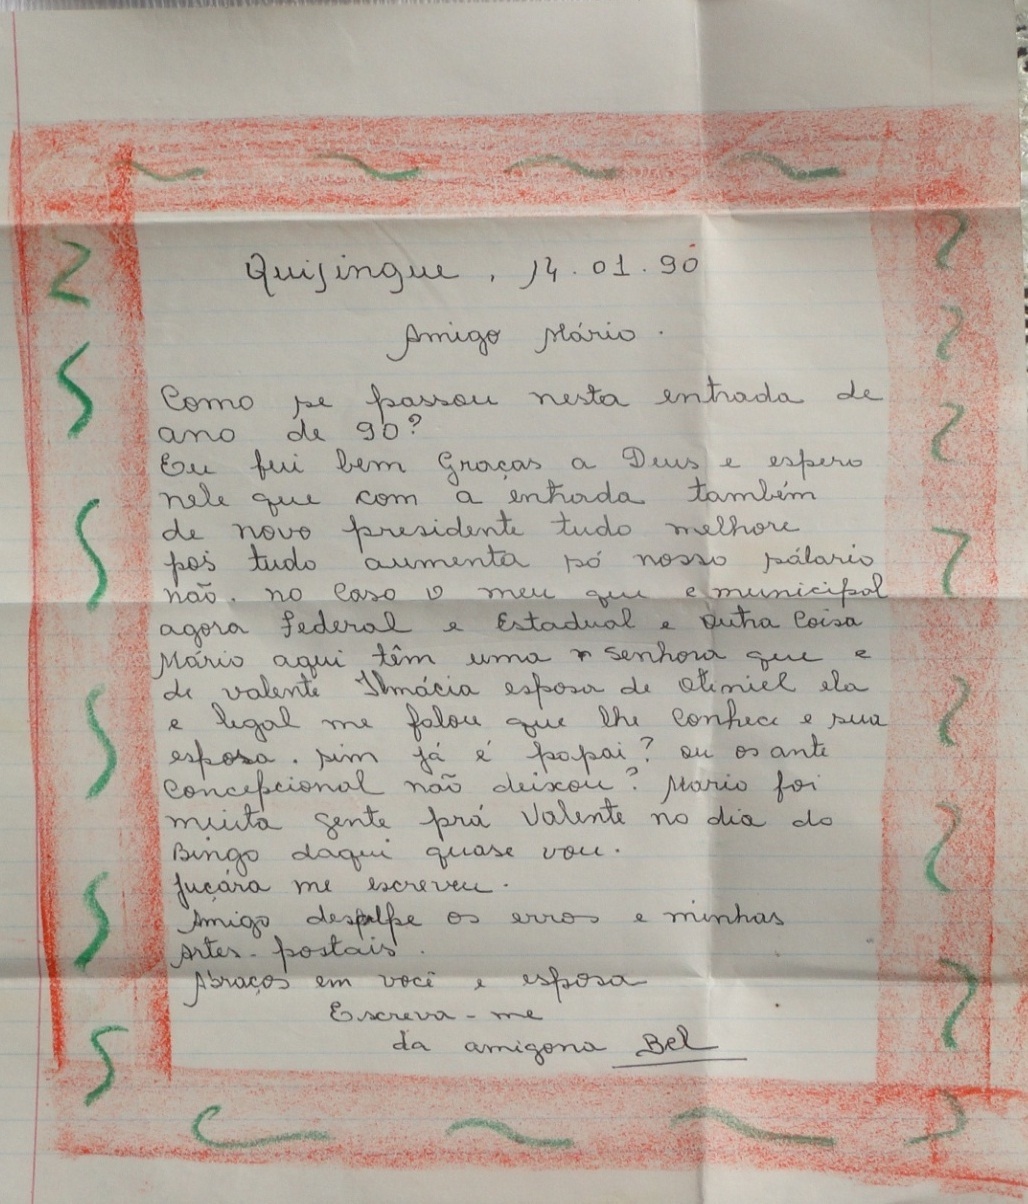 Quijingue, 14.01.90
Amigo Mário.
Como se passou nesta entrada de
ano de 90?
Eu fui bem Graças a Deus e espero
nele que com a entrada também
de novo presidente tudo melhore
pois tudo aumenta só nosso sálario
não. no Caso o meu que e municipal
agora Federal e Estadual e outra Coisa
Mário aqui têm uma senhora que e
de valente Ilmácia esposa de Otiniel ela
e legal me falou que lhe conhece e sua
esposa. sim já é papai? ou os ante
Concepcional não deixou? Mario foi
muita gente prá Valente no dia do
Bingo daqui quase vou.
Juçára me escreveu.
Amigo despulpe os erros e minhas
Artes-postais.
Abraços em você e esposa
Escreva-me
da amigona Bel